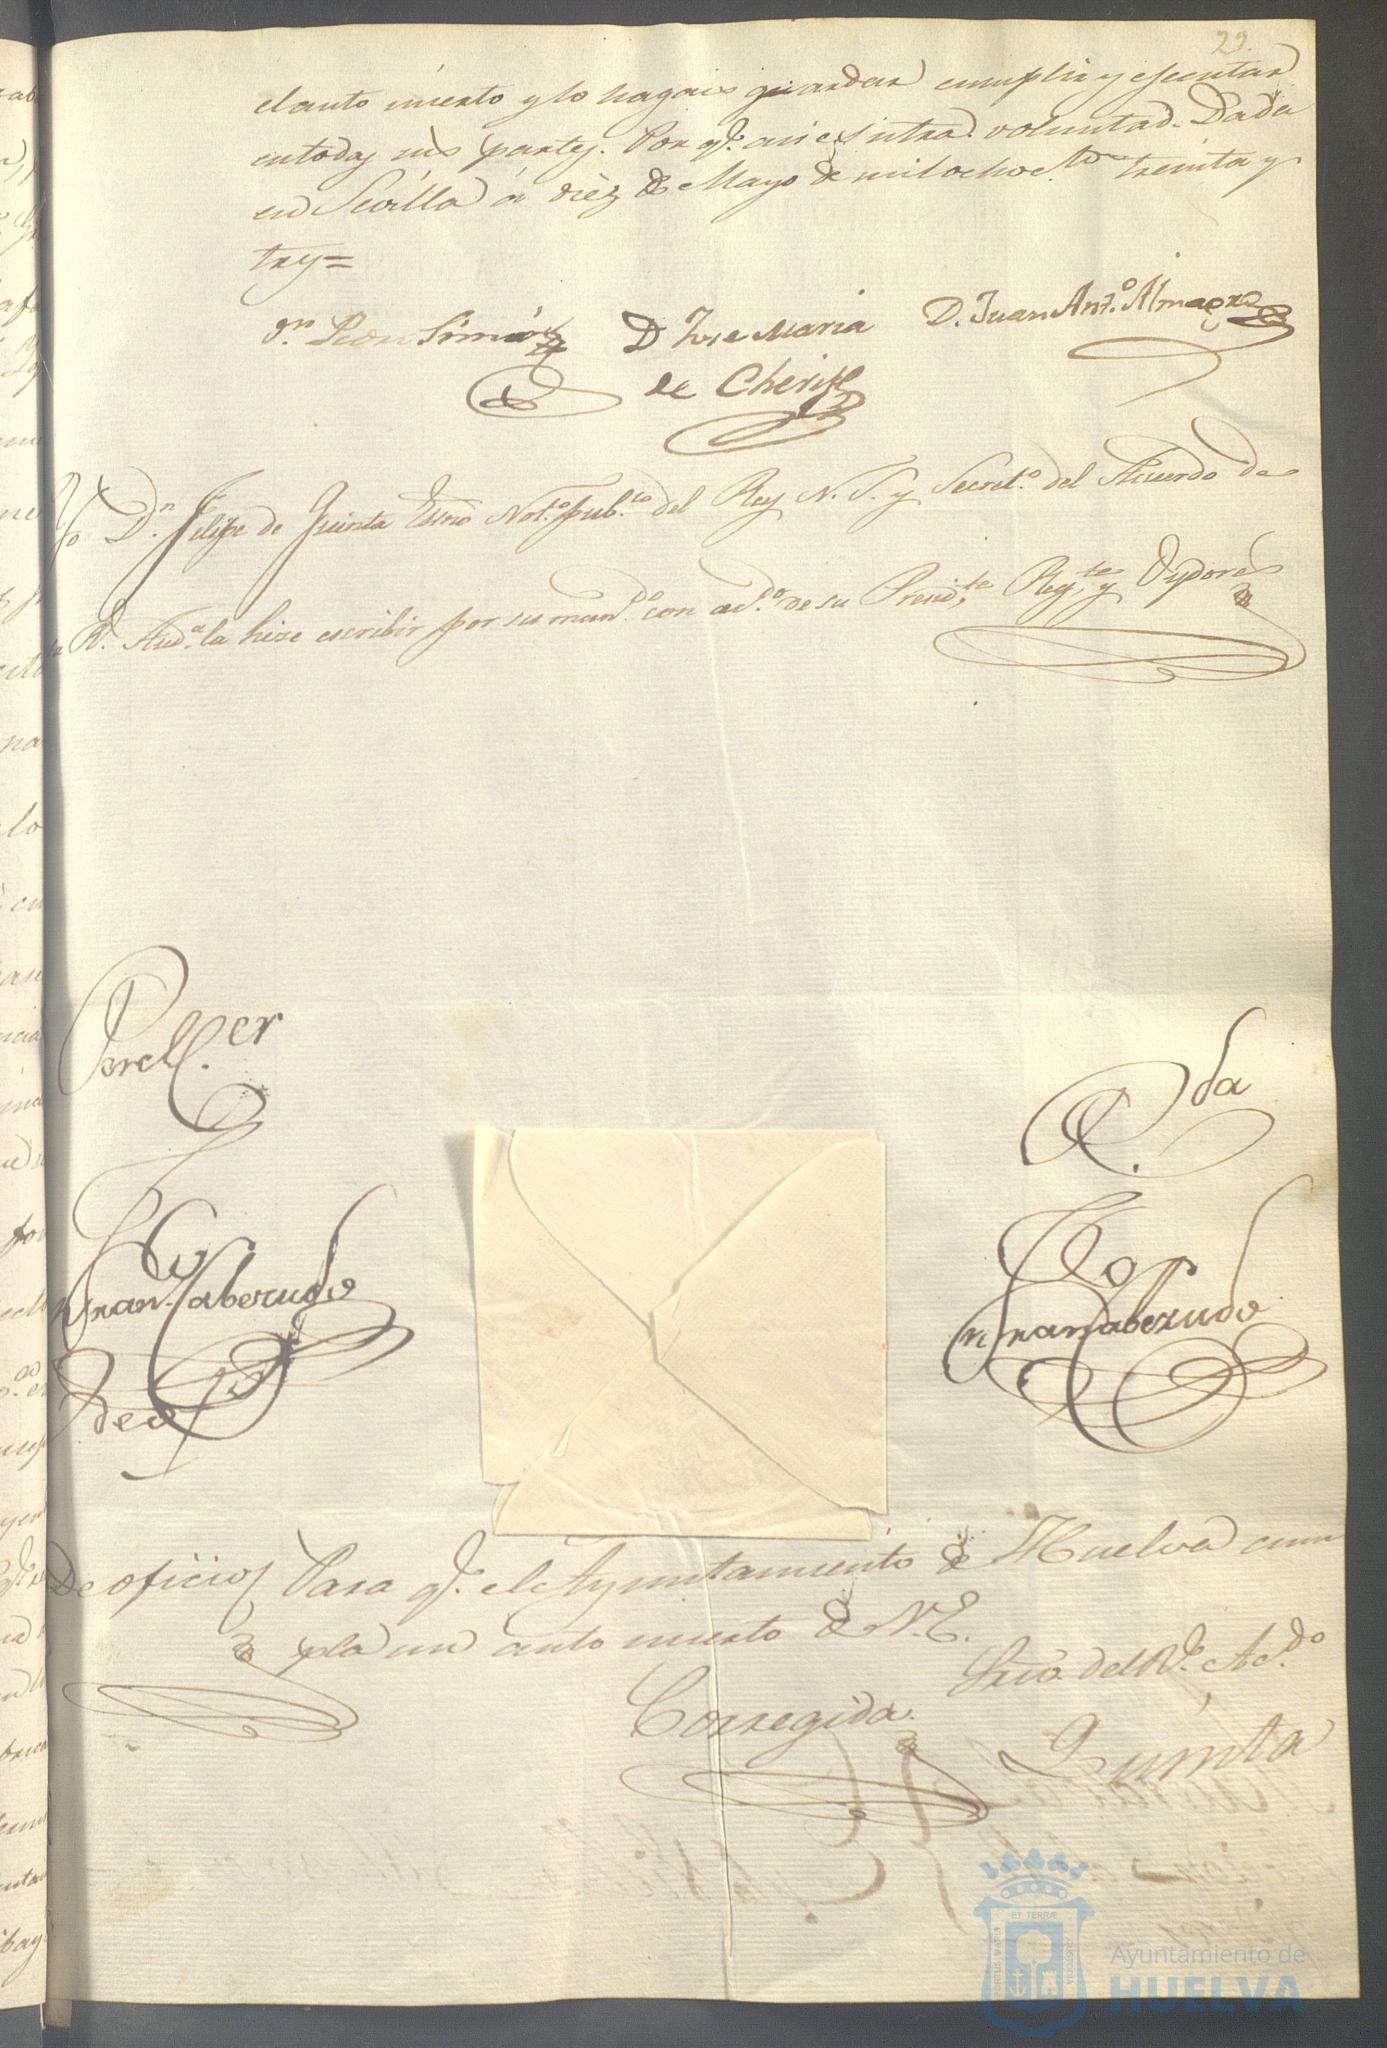 29.
el auto inserto y lo hagais guardar cumplir y ejecutar
en todas sus partes. Por q.e asi es ntra. voluntad. Dada
en Sevilla á diez de Mayo de mil ochoc.tos treinta y
tres=
D.n Simó
D Jose Maria
de Cherif
D. Juan Ant.o Almagro
Yo D.n Felipe de Quinta Essno Not.o pub.co del Rey N. S. y Secret.o del Acuerdo de
R.l Aud.a la hice escribir por su man.do con ac.do de su Presid.te Reg.te y Oydores
Cller
R.da
Fran.co Caberudo
Fran.co Caberudo
De oficio Para q.e el Ayuntamiento de Huelva cum
pla un auto inserto de V.E.
Srio. del R.l Ac.do
Corregida.
Quinta
ET TERRÆ
PORTUS MARIS
CUSTODIA
Ayuntamiento de
HUELVA